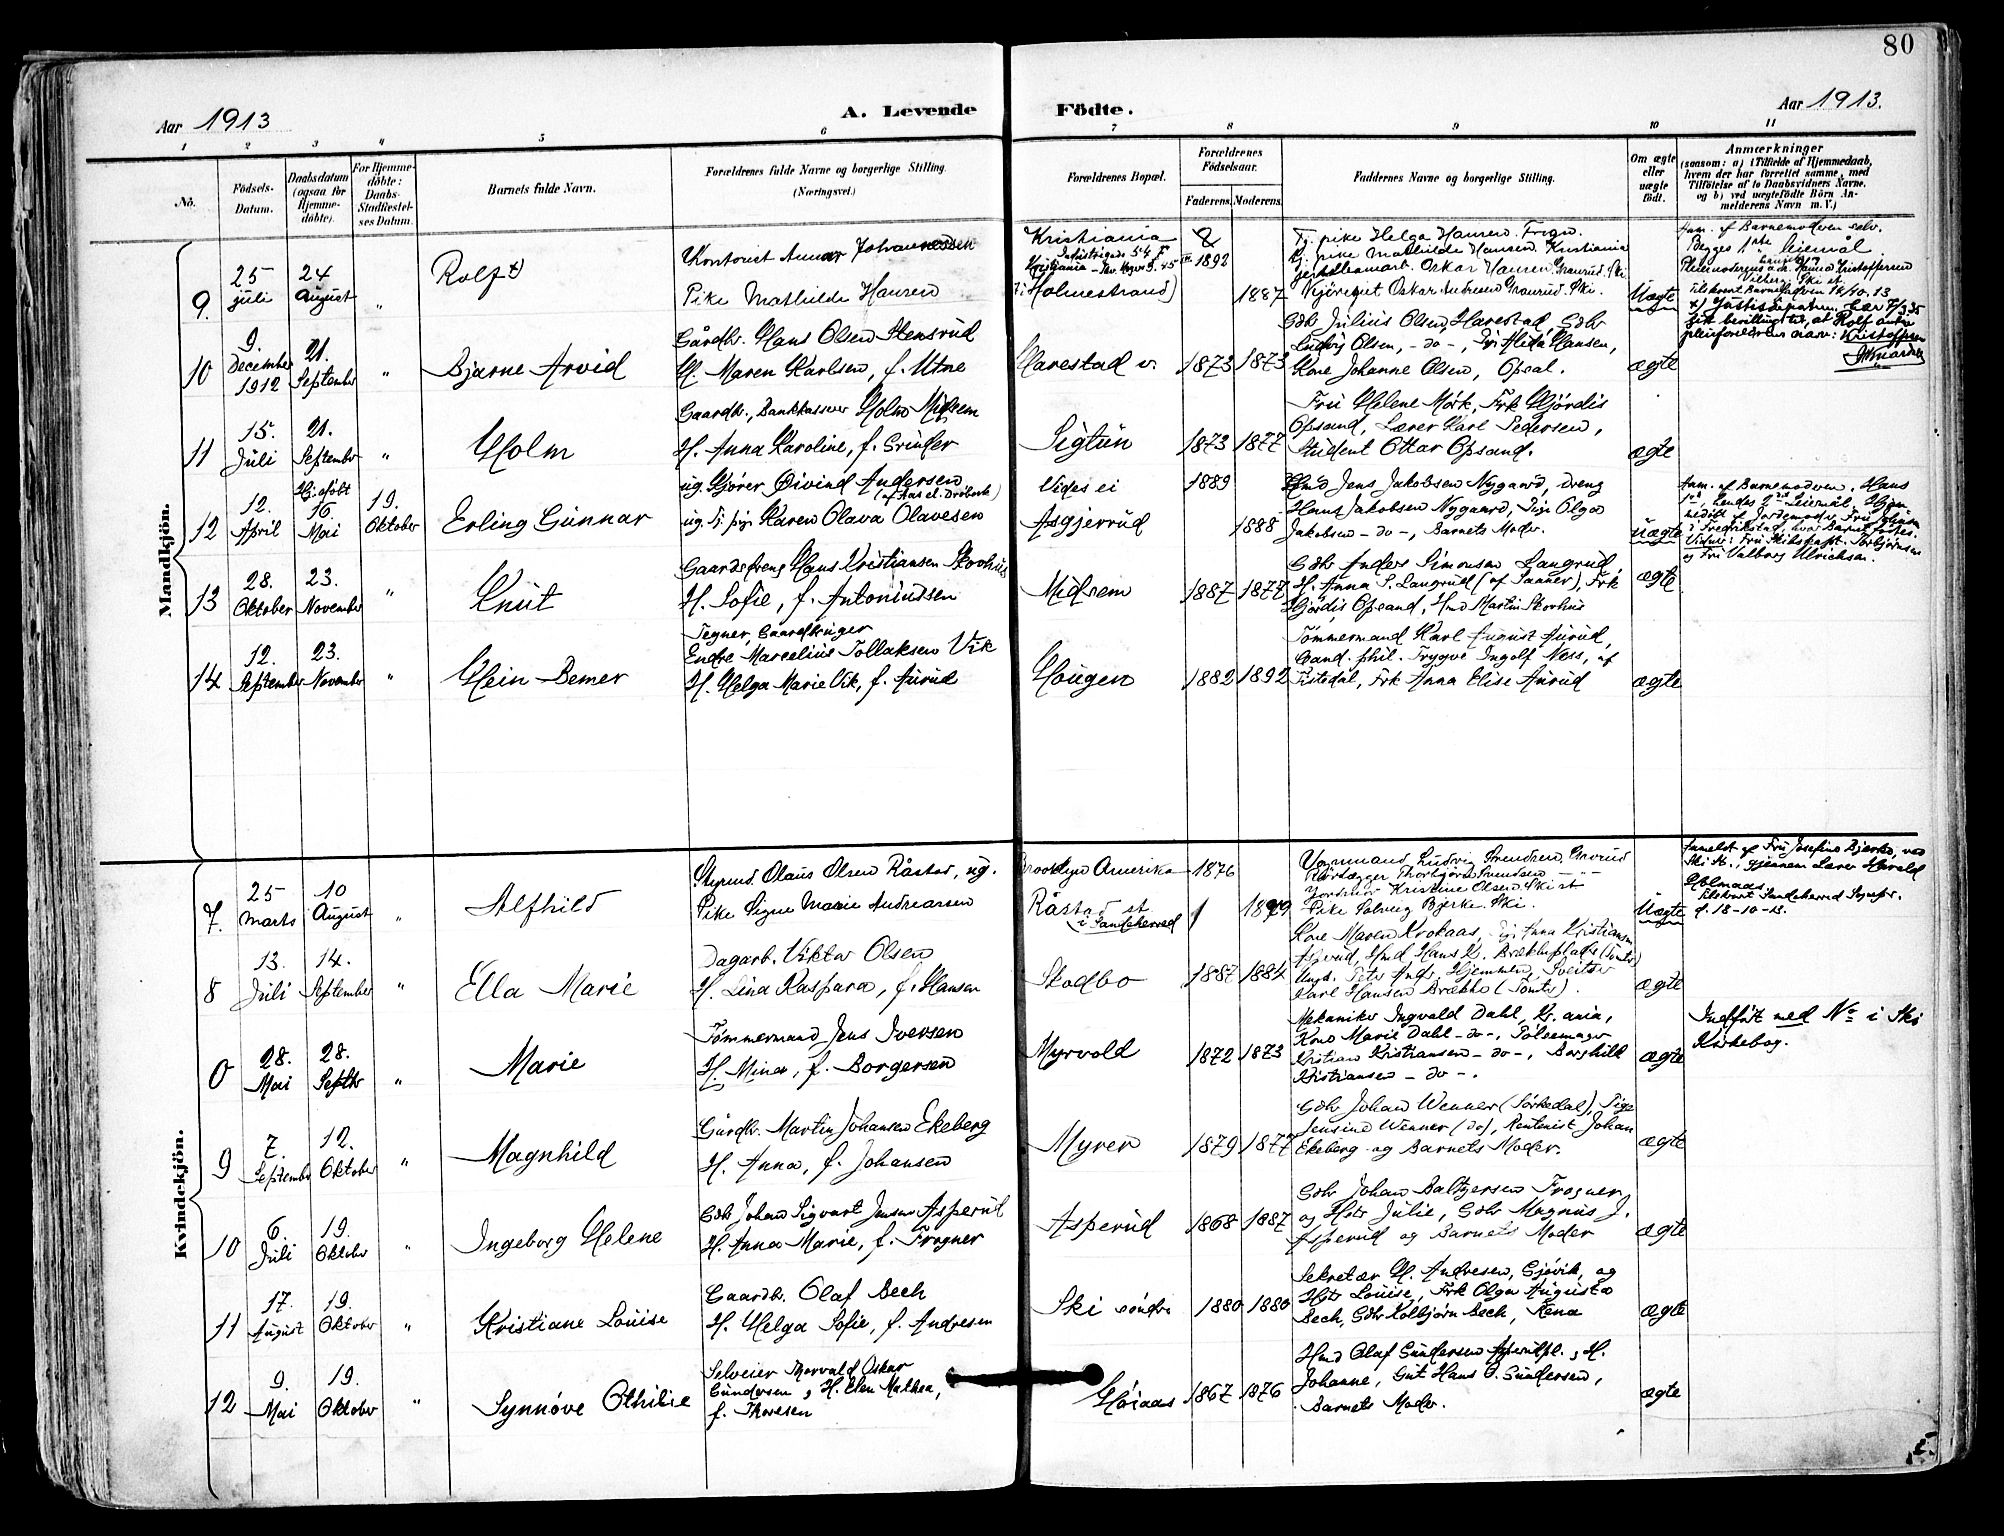 80
Aar 1913
A. Levende
Födte.
Aar 1913.
1 2 3 4 5 6 7 8 9 10 11
No.
Födsels-
Datum.
Daabsdatum
(ogsaa for
Hjemme-
döbte).
For Hjemme-
döbte:
Daabs-
Stadfæstel-
ses Datum.
Barnets fulde Navn.
Forældrenes fulde Navne og borgerlige Stilling.
(Næringsvei.)
Forældrenes Bopæl.
Forældrenes
Födselsaar.
Faderens.
Moderens.
Faddernes Navne og borgerlige Stilling.
Om ægte
eller
uægte
födt.
Anmærkninger
(saasom: a) i Tilfælde af Hjemmedaab,
hvem der har forrettet samme, med
Tilföielse af to Daabsvidners Navne,
og b) ved uægtefödte Börn An-
melderens Navn m. V.)
Mandkjön.
9.
25
juli
24
August
"
Rolf
Kontorist Johannessen
Pike Mathilde Hansen
Kristiania
Holmestrand)
1892
1887
Tj. pike Helga Hansen. Frogn.
Tj. pike Mathilde Hansen. Kristiania
Oskar Hansen Ski
Oskar Andresen Ski.
Uægte
Anm. af Barnemoderen selv.
Begges 1ste Leiermål
10
9.
December
1912
21.
September
"
Bjarne Arvid
Gårdbr. Hans Olsen Stensrud
H. Maren Karlsen, f. Utne
Harestad v.
1873
1873
Gdbr Julius Olsen Harestad, Gdbr
Ludvig Olsen, - do -, Pi Alida Hansen,
Kone Johanne Olsen, Opsal.
ægte
11
15.
Juli
21.
September
"
Holm
Gaardbr., Bankkasserer Holm Midsem
H. Anna Karoline, f. Grinder
Sigtun
1873
1877
Fru Helene Mörk, Frk Hjördis
Opsand, Lærer Karl Pedersen,
Student Ottar Opsand.
ægte
12
12.
April
Hj.døbt
16.
Mai
19.
Oktober
Erling Gunnar
ug. Kjører Øivind Andersen
(af Aas el. Drøbak)
ug. Tj. pige Karen Olava Olavesen
Vides ei
Asgjerrud
1889
1888
Hmd Jens Jakobsen Nygaard, Dreng
Hans Jakobsen Nygaard, Pige Olga
Jakobsen - do -, Barnets Moder.
uægte
Anm. af Barnemoderen. Hans
1ste, hendes 2det Leiermål. Hjem-
medøbt af Jordemoder Fru
i Fredrikstad, hvor Barnet fødtes.
Vidner: Fru
og Fru Valborg Ulrichsen.
13
28.
Oktober
23.
November
"
Knut
Gaardsdreng Hans Kristiansen Skovhus
H. Sofie, f. Antoniussen
Midsem
1887
1877
Gdbr Anders Simonsen Langrud,
H. Anna P. Langrud (af Sanner), Frk
Hjördis Opsand, Hmd Martin Skovhus
ægte
14
12.
September
23.
November
"
Hein-Bemer
Tegner, Gaardbruger
Endre Marcelius Tollaksen Vik
H. Helga Marie Vik, f. Aurud
Haugen
1882
1892
Tömmermand Karl August Aurud,
Cand. phil. Trygve Ingolf Ness, af
Tistedal, Frk Anna Elise Aurud
ægte
Kvindekjön.
7.
25
Marts
10
August
"
Alfhild
Styrmd. Olaus Olsen Råstad, ug.
Pike Signe Marie Andreassen
Brooklyn Amerika
Råstad st
i Sandeherred
1876
Ludvig Svendsen
Thorbjörn Svendsen - " -
Jordmor Kristine Olsen Ski st
Pike Solveig Bjerke. Ski.
Uægte
Anmeldt af Fru Josefine Bjerke, ved
Ski st., gjennem Lærer Harald
Holmaas.
Sandeherred
d. 18-10-13.
8
13.
Juli
14.
September
"
Ella Marie
Dagarb. Viktor Olsen
H. Lina Kaspara, f. Hansen
Skodbo
1887
1884
Kone Maren Krokaas, Pi Anna Kristiansen
Asperud, Hmd Hans K. Brækkeplads (Tomter)
Ungk. Peter Andr. Hjemmen, Sveitser
Karl Hansen Brække (Tomter).
ægte
0
28.
Mai
28.
Septbr
"
Marie
Tömmermand Jens Iversen
H. Mina, f. Borgersen
Myrvold
1872
1873
Mekaniker Ingvald Dahl, Kr.ania,
Kone Marie Dahl - do -, Pölsemager
Kristian Kristiansen - do -, Borghild
Kristiansen - do -.
ægte
Indført med No i Ski
Kirkebog.
9
7.
September
12.
Oktober
"
Magnhild
Gårdbr. Martin Johansen Ekeberg
H. Anna, f. Johansen
Myrer
1879
1877
Gdbr Johan Wenner (Sörkedal), Pige
Jensine Wenner (do), Rentenist Johan
Ekeberg og Barnets Moder.
ægte
10
6.
Juli
19.
Oktober
"
Ingeborg Helene
Gdbr Johan Sigvart Jensen Asperud
H. Anna Marie, f. Frogner
Asperud
1868
1887
Gdbr Johan Baltzersen Frogner
og Hstr Julie, Gdbr Magnus J.
Asperud og Barnets Moder
ægte
11
17.
August
19.
Oktober
"
Kristiane Louise
Gaardbr. Olaf Bech
H. Helga Sofie, f. Andresen
Ski söndre
1880
1880
Sekretær H. Andresen, Gjövik, og
Hstr Louise, Frk Olga Augusta
Bech, Gdbr Kolbjörn Bech, Rena
ægte
12
9.
Mai
19.
Oktober
"
Synnöve Othilie
Selveier Thorvald Oskar
Gundersen, H. Elen Mathea,
f. Thoresen
Höiaas
1867
1876
Hmd Olaf Gundersen Asperudpl., H.
Johanne, Gut Hans O. Gundersen,
Barnets Moder.
ægte